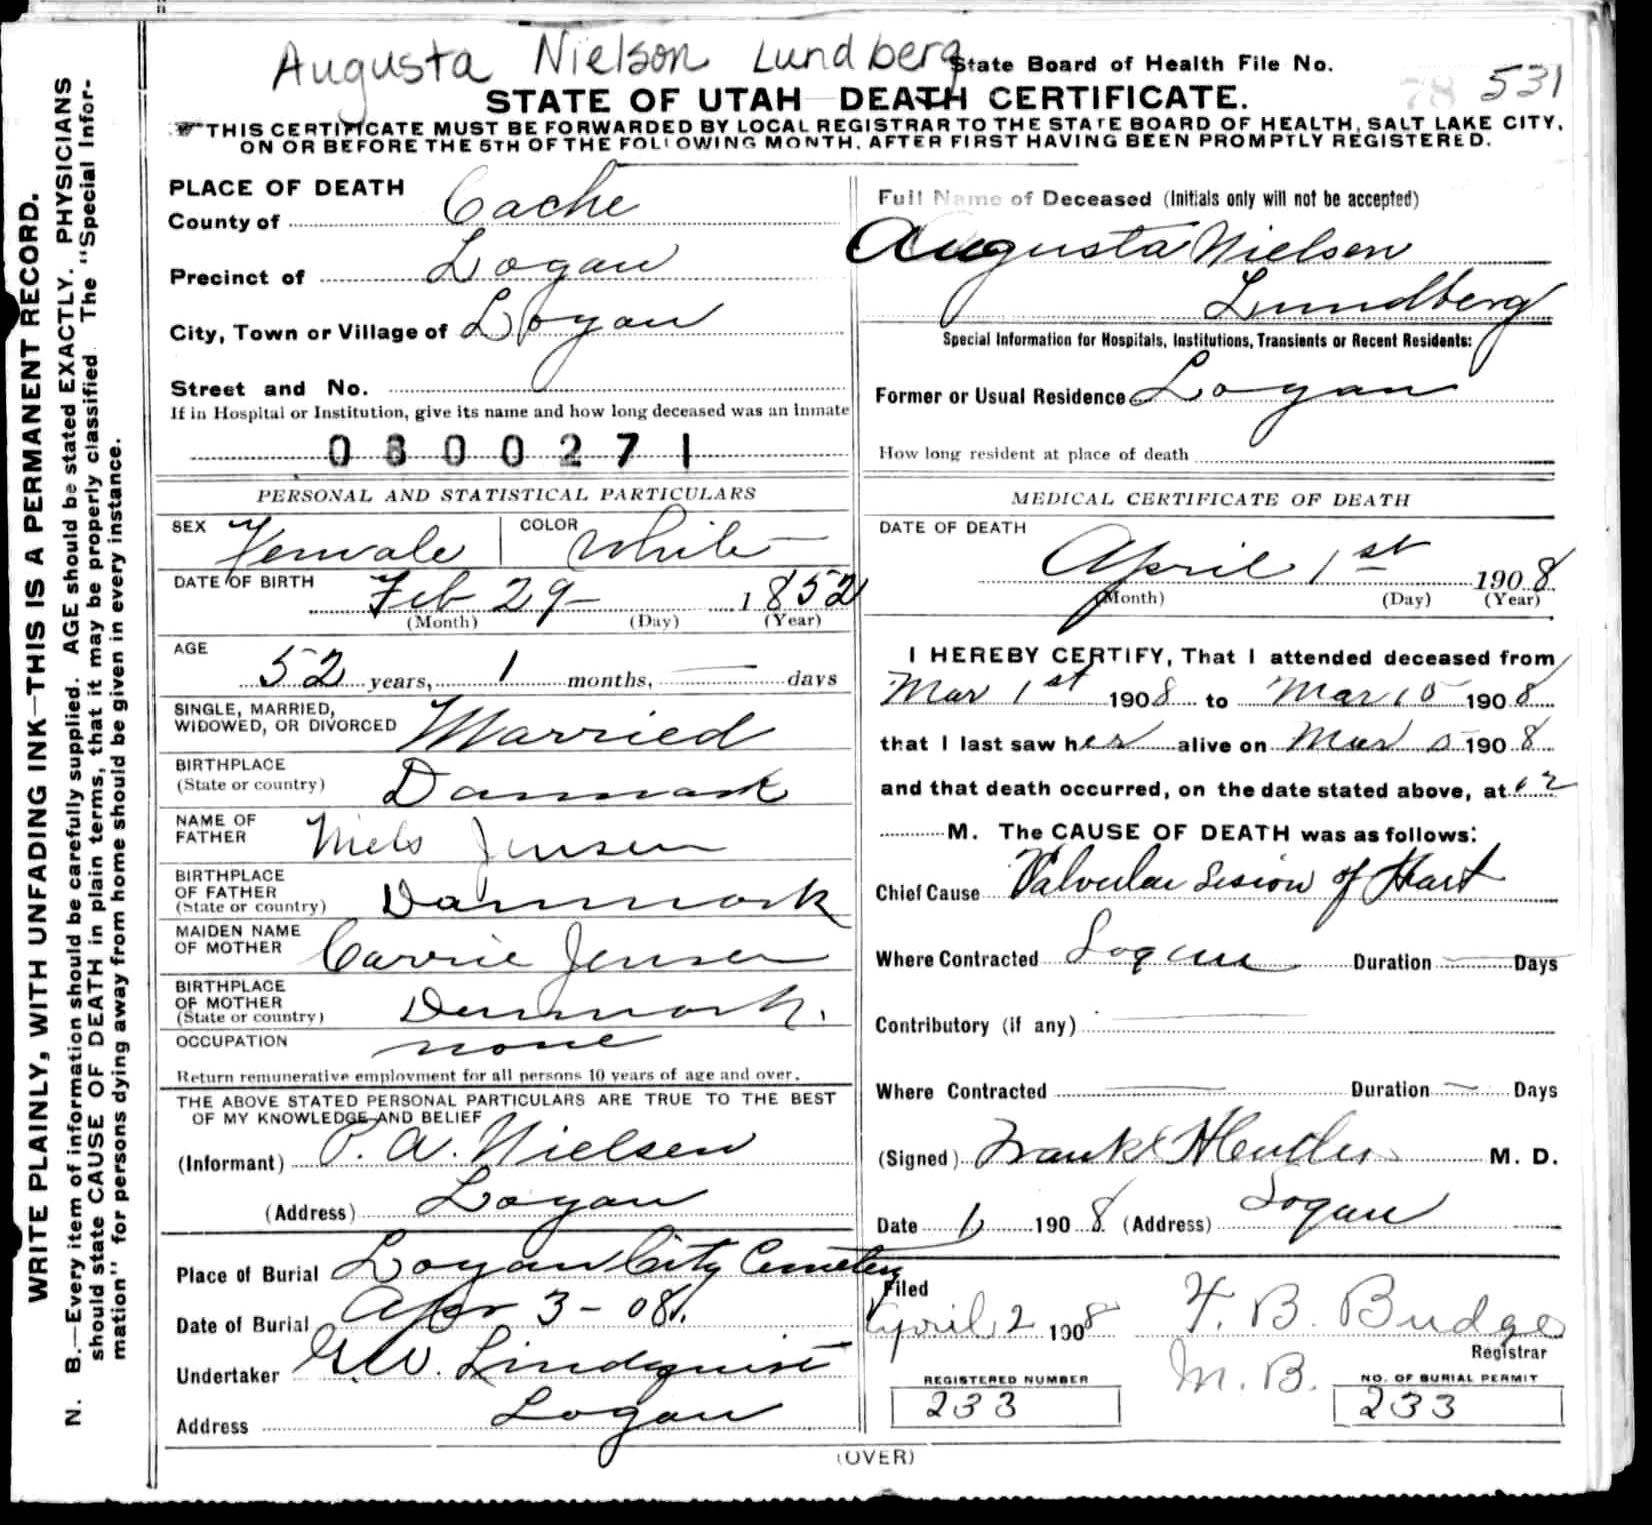 Augusta Nielson Lundberg
State Board of Health File No. 78 531
STATE OF UTAH DEATH CERTIFICATE.
THIS CERTIFICATE MUST BE FORWARDED BY LOCAL REGISTRAR TO THE STATE BOARD OF HEALTH, SALT LAKE CITY,
ON OR BEFORE THE 5TH OF THE FOLLOWING MONTH, AFTER FIRST HAVING BEEN PROMPTLY REGISTERED.
WRITE PLAINLY, WITH UNFADING INK—THIS IS A PERMANENT RECORD.
N. B.—Every item of information should be carefully supplied. AGE should be stated EXACTLY. PHYSICIANS
should state CAUSE OF DEATH in plain terms, that it may be properly classified. The "Special Infor-
mation" for persons dying away from home should be given in every instance.
PLACE OF DEATH
County of Cache
Precinct of Logan
City, Town or Village of Logan
Street and No.
If in Hospital or Institution, give its name and how long deceased was an inmate
0800271
PERSONAL AND STATISTICAL PARTICULARS
SEX Female COLOR White
DATE OF BIRTH
Feb 29 1852
(Month) (Day) (Year)
AGE
52 years, 1 months, days
SINGLE, MARRIED,
WIDOWED, OR DIVORCED Married
BIRTHPLACE
(State or country) Danmark
NAME OF
FATHER Niels Jensen
BIRTHPLACE
OF FATHER
(State or country) Danmark
MAIDEN NAME
OF MOTHER Carrie Jensen
BIRTHPLACE
OF MOTHER
(State or country) Denmark.
OCCUPATION none
Return remunerative employment for all persons 10 years of age and over.
THE ABOVE STATED PERSONAL PARTICULARS ARE TRUE TO THE BEST
OF MY KNOWLEDGE AND BELIEF
(Informant) P. A. Nielsen
(Address) Logan
Place of Burial Logan City Cemetery
Date of Burial Apr 3-08.
Undertaker G.W. Lindquist
Address Logan
Full Name of Deceased (Initials only will not be accepted)
Augusta Nielsen
Lundberg
Special Information for Hospitals, Institutions, Transients or Recent Residents:
Former or Usual Residence Logan
How long resident at place of death
MEDICAL CERTIFICATE OF DEATH
DATE OF DEATH
April 1st 1908
(Month) (Day) (Year)
I HEREBY CERTIFY, That I attended deceased from
Mar 1st 1908 to Mar 15 1908
that I last saw her alive on Mar 1908
and that death occurred, on the date stated above, at 12
M. The CAUSE OF DEATH was as follows:
Chief Cause Valvular Lesion of Heart
Where Contracted Logan Duration Days
Contributory (if any)
Where Contracted Duration Days
(Signed) Frank M. D.
Date 1908 (Address) Logan
Filed
April 2 1908 F. B. Budge
Registrar
M. B.
REGISTERED NUMBER
233
NO. OF BURIAL PERMIT
233
(OVER)